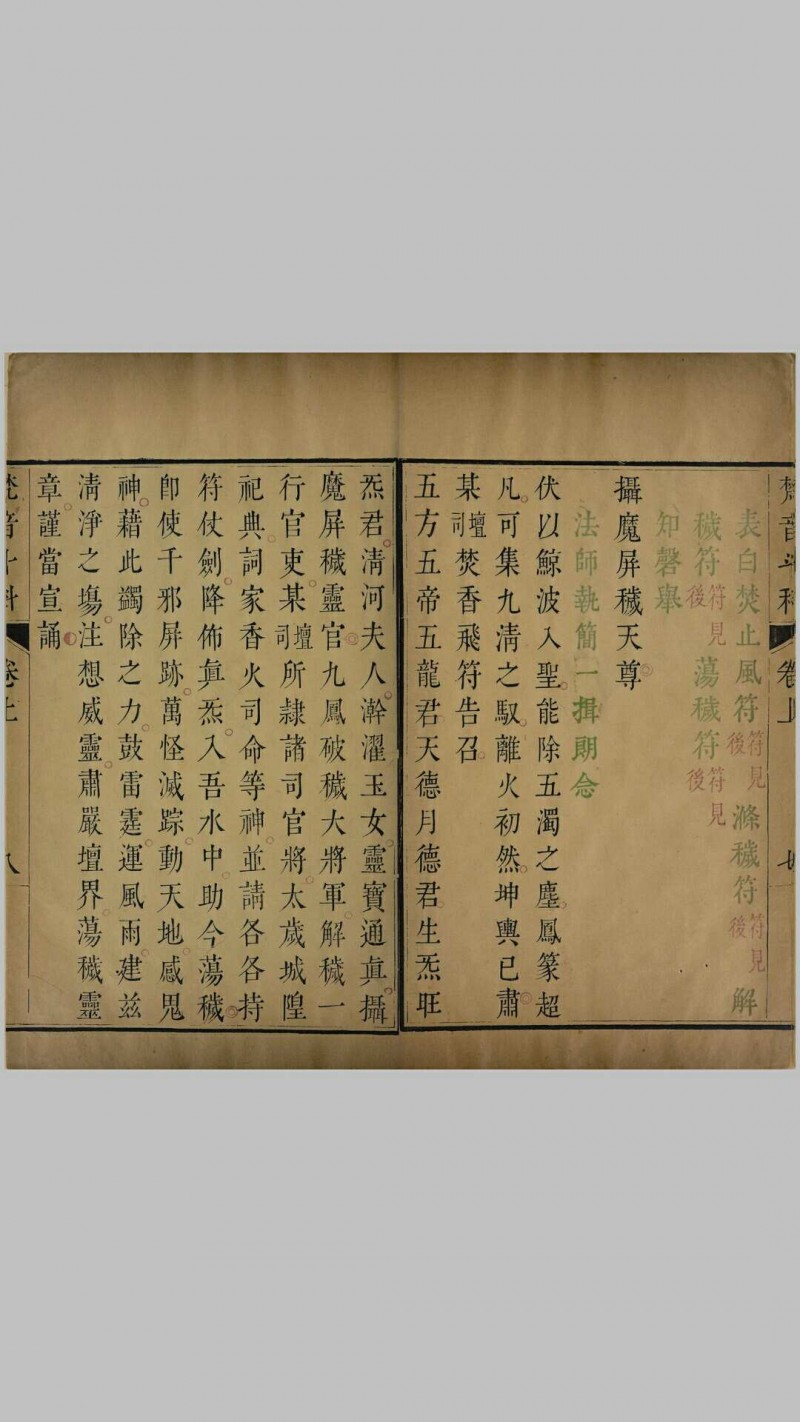 梵音斗科 卷上 七
表白焚止風符符見後滌穢符符見後解
穢符符見後蕩穢符符見後
知磬舉
攝魔屏穢天尊
法師執簡一揖朗念
伏以鯨波入聖能除五濁之塵鳳篆超
凡可集九淸之馭離火初然坤輿已肅
某壇司焚香飛符告召
五方五帝五龍君天德月德君生炁旺
炁君淸河夫人澣濯玉女靈寶通眞攝
魔屏穢靈官九鳳破穢大將軍解穢一
行官吏某壇司所隸諸司官將太歲城隍
祀典詞家香火司命等神並請各各持
符仗劍降佈眞炁入吾水中助今蕩穢
卽使千邪屏跡萬怪滅踪動天地感鬼
神藉此蠲除之力鼓雷霆運風雨建兹
淸淨之塲注想威靈肅嚴壇界蕩穢靈
章謹當宣誦
梵音斗科 卷上 八